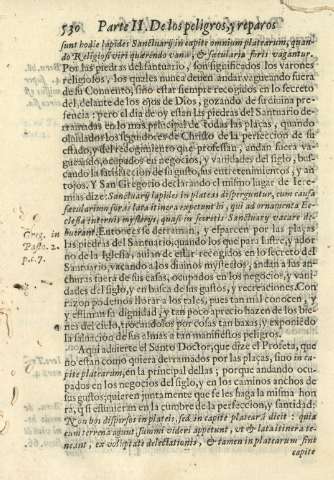 530 Parte II. De los peligros, y reparos
sunt hodie lapides Sanctuarij in capite omnium platearum, quan-
do Religiosi viri querendo vana, & sæcularia foris vagantur.
Por las piedras del santuario, son significados los varones
religiosos, los quales nunca deuen andar vagueando fuera
de su Conuento, sino estar siempre recogidos en lo secreto
del, delante de los ojos de Dios, gozando de su diuina pre-
sencia: pero el dia de oy estan las piedras del Santuario de-
rramadas en lo mas principal de todas las plaças, quando
olvidados los seguidores de Christo de la perfeccion de su
estado, y del recogimiento que professan, andan fuera va-
gueando, ocupados en negocios, y vanidades del siglo, bus-
cando la satisfaccion de su gusto, sus entretenimientos, y an-
tojos. Y San Gregorio declarando el mismo lugar de Iere-
mias dize: Sanctuary lapides in plateis disperguntur, cum causa
sæcularium foris lata itinera expetunt hi, qui ad ornamenta Ec-
clesia internis mysterijs, quasi in secretis Sanctuary vacare de-
buerant. Entonces se derraman, y esparcen por las plaças
las piedras del Santuario, quando los que para lustre, y ador-
no de la Iglesia, auian de estar recogidos en lo secreto del
Santuario, vacando a los diuinos mysterios, andan a las an-
churas fuera de sus casas, ocupados en los negocios, y vani-
dades del siglo, y en busca de sus gustos, y recreaciones. Con
razon podemos llorar a los tales, pues tan mal conocen, y
y estiman su dignidad, y tan poco aprecio hazen de los bie-
nes del cielo, trocandolos por cosas tan baxas, y exponiedo
la saluacion de sus almas a tan manifiestos peligros.
Aqui aduierte el Santo Doctor, que dize el Profeta, que
no estan como quiera derramados por las plaças, sino in ca-
pite platearum, en la principal dellas; porque andando ocu-
pados en los negocios del siglo, y en los caminos anchos de
sus gustos, quieren juntamente que se les haga la misma hon
ra, q̃ si estuuieran en la cumbre de la perfeccion, y santidad.
Non hoi dispersos in plateis, sed in capite platearũ dicit: quia
cum terrena agunt, summi videri appetunt, vt & lata itinera te-
neant, ex voluptate delectationis, & tamen in platearum sint
capite
Greg. in
Pasto. 2.
p. c. 7.